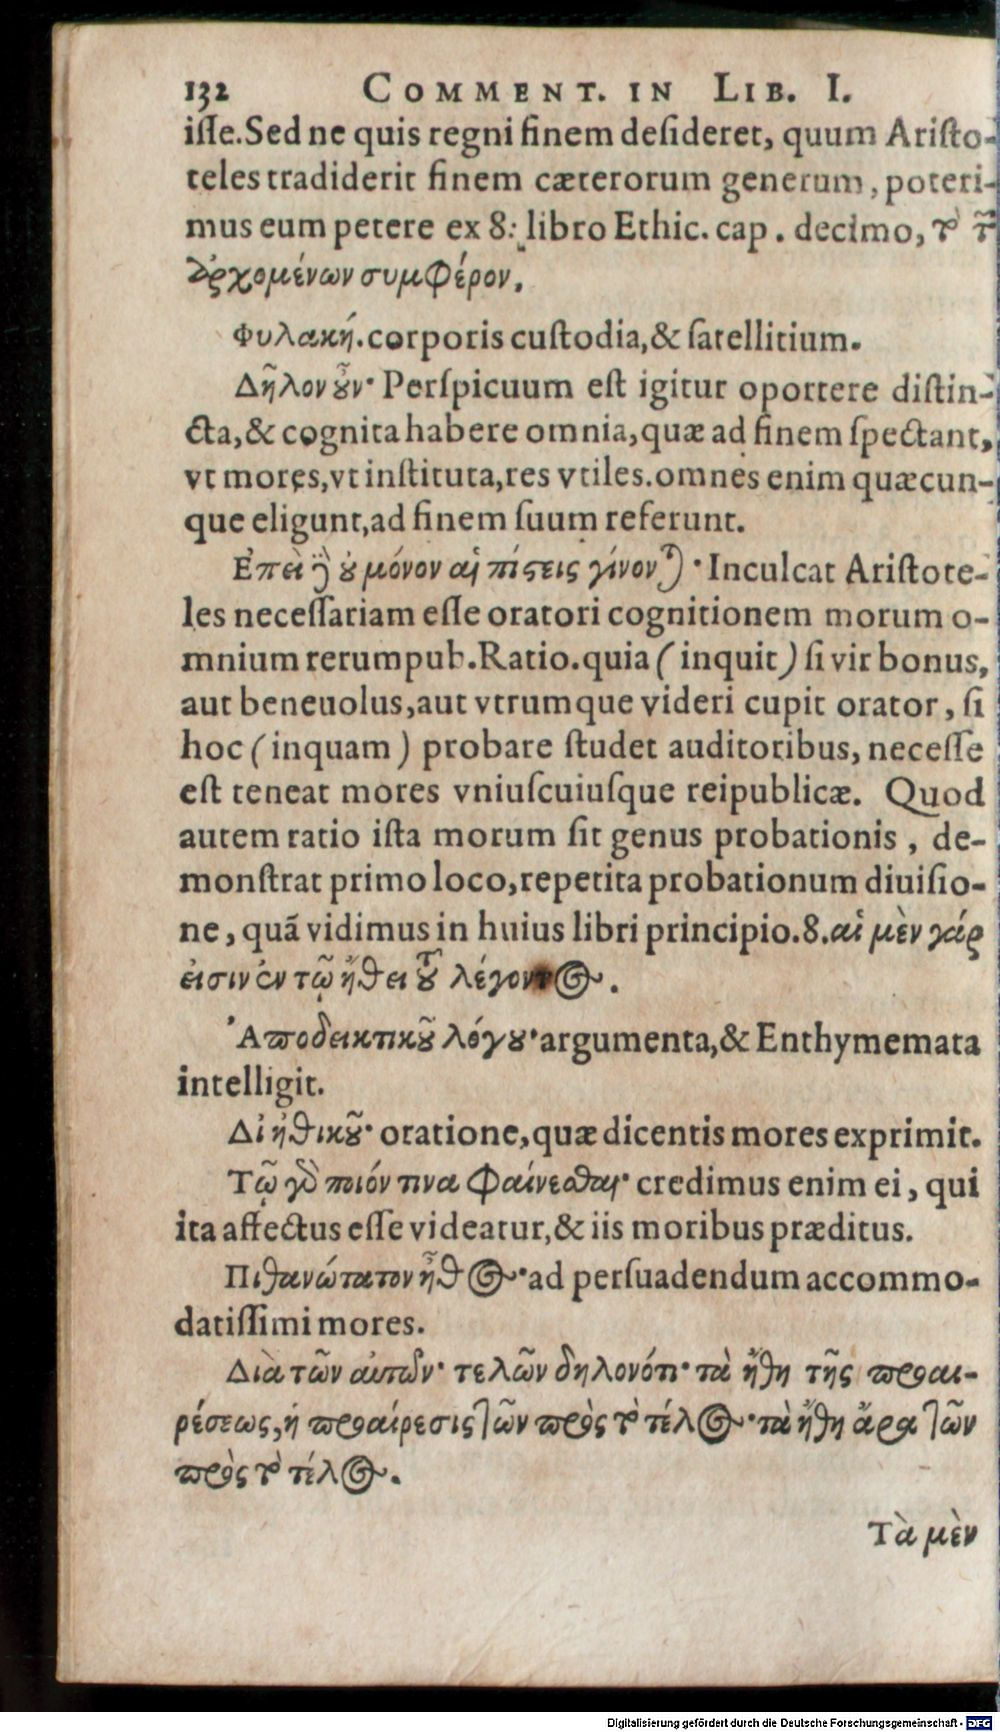 132 COMMENT. IN LIB. I.
isse. Sed ne quis regni finem desideret, quum Aristo-
teles tradiderit finem cæterorum generum, poteri-
mus eum petere ex 8: libro Ethic. cap. decimo, τὸ τῶν
ἀρχομένων συμφέρον.
Φυλακή. corporis custodia, & satellitium.
Δῆλον οὖν· Perspicuum est igitur oportere distin-
cta, & cognita habere omnia, quæ ad finem spectant,
vt mores, vt instituta, res vtiles. omnes enim quæcun-
que eligunt, ad finem suum referunt.
Ἐπεὶ δὲ οὐ μόνον αἱ πίστεις γίνονται· Inculcat Aristote-
les necessariam esse oratori cognitionem morum o-
mnium rerumpub. Ratio. quia (inquit) si vir bonus,
aut beneuolus, aut vtrumque videri cupit orator, si
hoc (inquam) probare studet auditoribus, necesse
est teneat mores vniuscuiusque reipublicæ. Quod
autem ratio ista morum sit genus probationis, de-
monstrat primo loco, repetita probationum diuisio-
ne, quã vidimus in huius libri principio. 8. αἱ μὲν γάρ
εἰσιν ἐν τῷ ἤθει τοῦ λέγοντος.
Ἀποδεικτικοῦ λόγου· argumenta, & Enthymemata
intelligit.
Δἰ ἠθικοῦ· oratione, quæ dicentis mores exprimit.
Τῷ γὸ ποιόν τινα φαίνεσθαι· credimus enim ei, qui
ita affectus esse videatur, & iis moribus præditus.
Πιθανώτατον ἦθος· ad persuadendum accommo-
datissimi mores.
Διὰ τῶν αὐτῶν· τελῶν δηλονότι· τὰ ἤθη τῆς προαι-
ρέσεως, ἡ προαίρεσις τῶν πρὸς τὸ τέλος· τὰ ἤθη ἄρα τῶν
πρὸς τὸ τέλος.
Τὰ μὲν
Digitalisierung gefördert durch die Deutsche Forschungsgemeinschaft - DFG